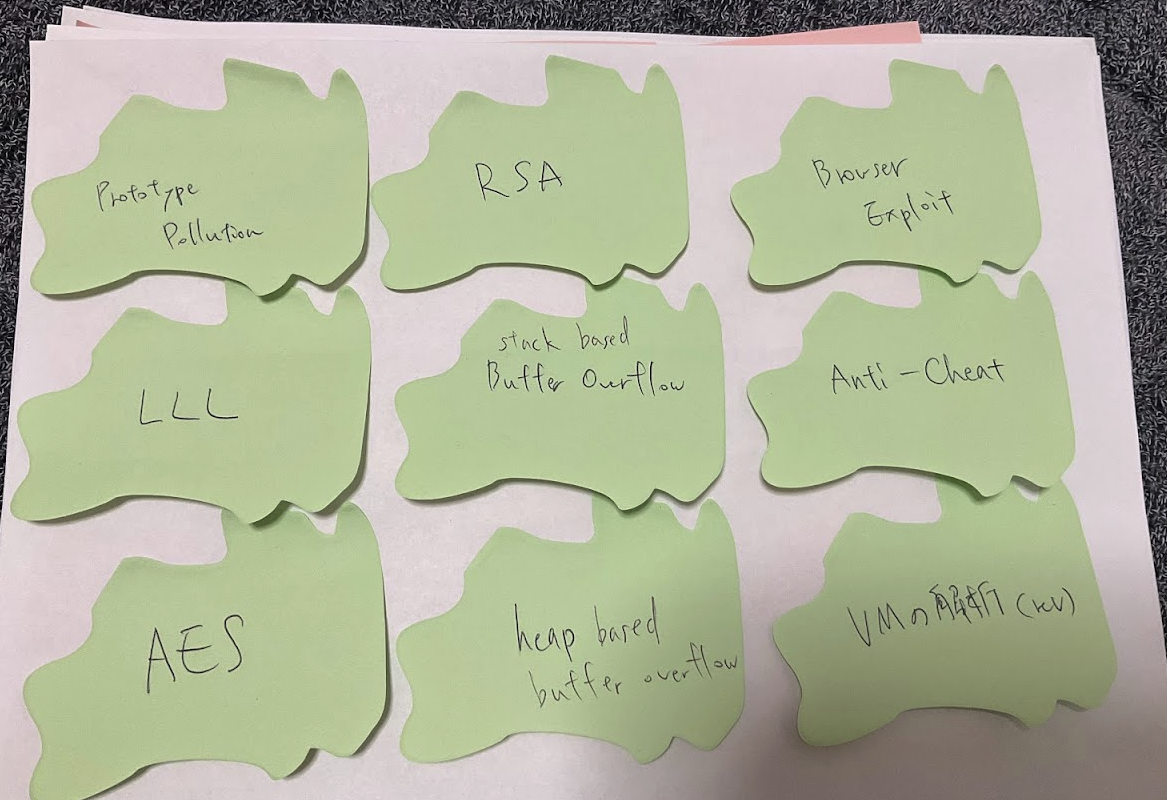 Prototype
Pollution
RSA
Browser
Exploit
LLL
stack based
Buffer Overflow
Anti-Cheat
AES
heap based
buffer overflow
VMの解析(rev)